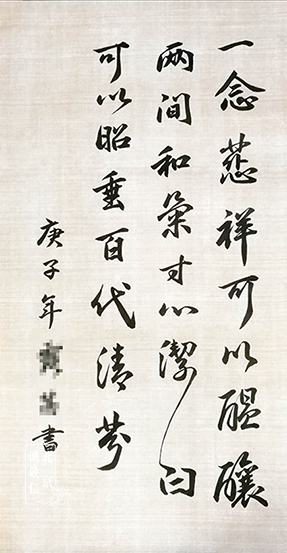 一念慈祥可以醖釀
两間和氣寸心潔白
可以昭垂百代清芬
庚子年 書